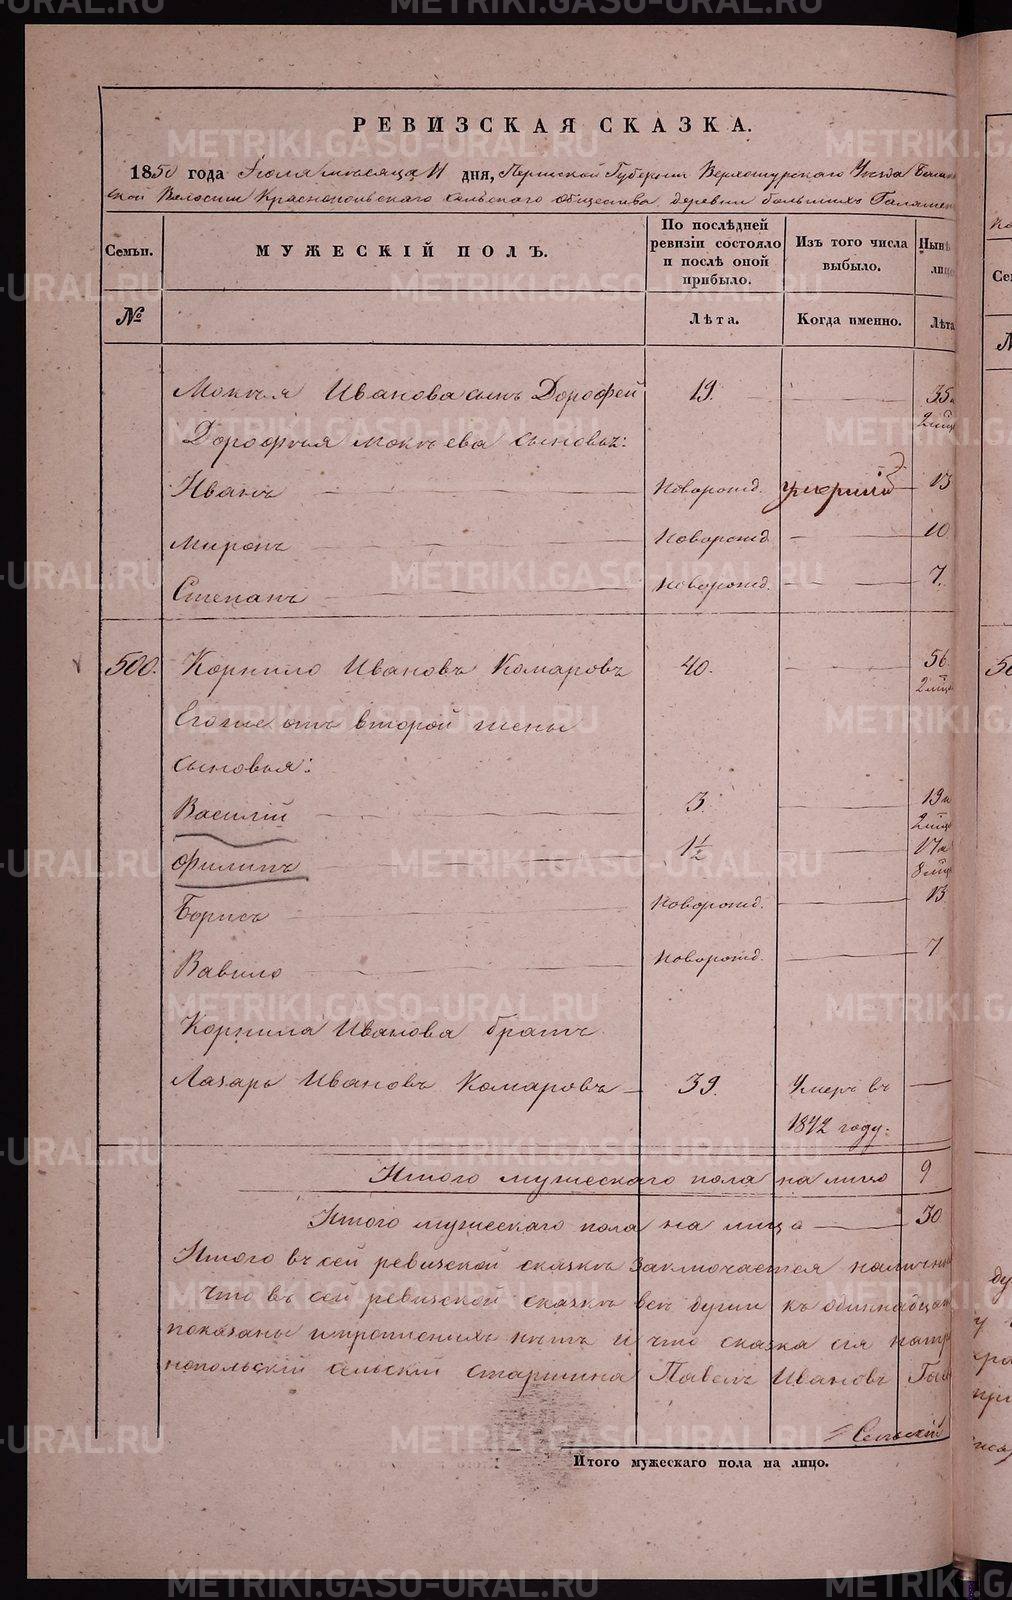 РЕВИЗСКАЯ СКАЗКА.
1850 года Іюля мѣсяца 11 дня, Пермской Губерніи Верхотурскаго Уѣзда
ской Волости Краснопольскаго сельскаго общества, деревни большихъ
Семьи.
МУЖЕСКІЙ ПОЛЪ.
По послѣдней ревизіи состояло и послѣ оной прибыло.
Изъ того числа выбыло.
Нынѣ
лицо
№
Лѣта.
Когда именно.
Лѣта
Мокѣя Иванова сынъ Дорофей 19. 35
2
Дорофѣя Мокѣева сыновья:
Иванъ Новорожд. умерший 13
Миронъ Новорожд 10
Степанъ Новорожд. 7.
500. Корнило Ивановъ Комаровъ 40. 56
2
Егоже отъ второй жены
сыновья:
Василій 3. 19
2
Филипъ 1½ 17
8
Борисъ Новорожд. 13
Вавило Новорожд. 7
Корнила Иванова братъ
Лазарь Ивановъ Комаровъ 39. Умеръ въ
1842 году.
Итого мужескаго пола на лицо 9
Итого мужескаго пола на лицо 30
Итого въ сей ревизской сказкѣ заключается
Что въ сей ревизской сказкѣ всѣ души къ
показаны и прописныхъ нѣтъ и что сказка сія
нопольскій сельскій старшина Павелъ Ивановъ
Сельскій
Итого мужескаго пола на лицо.
METRIKI.GASO-URAL.RU